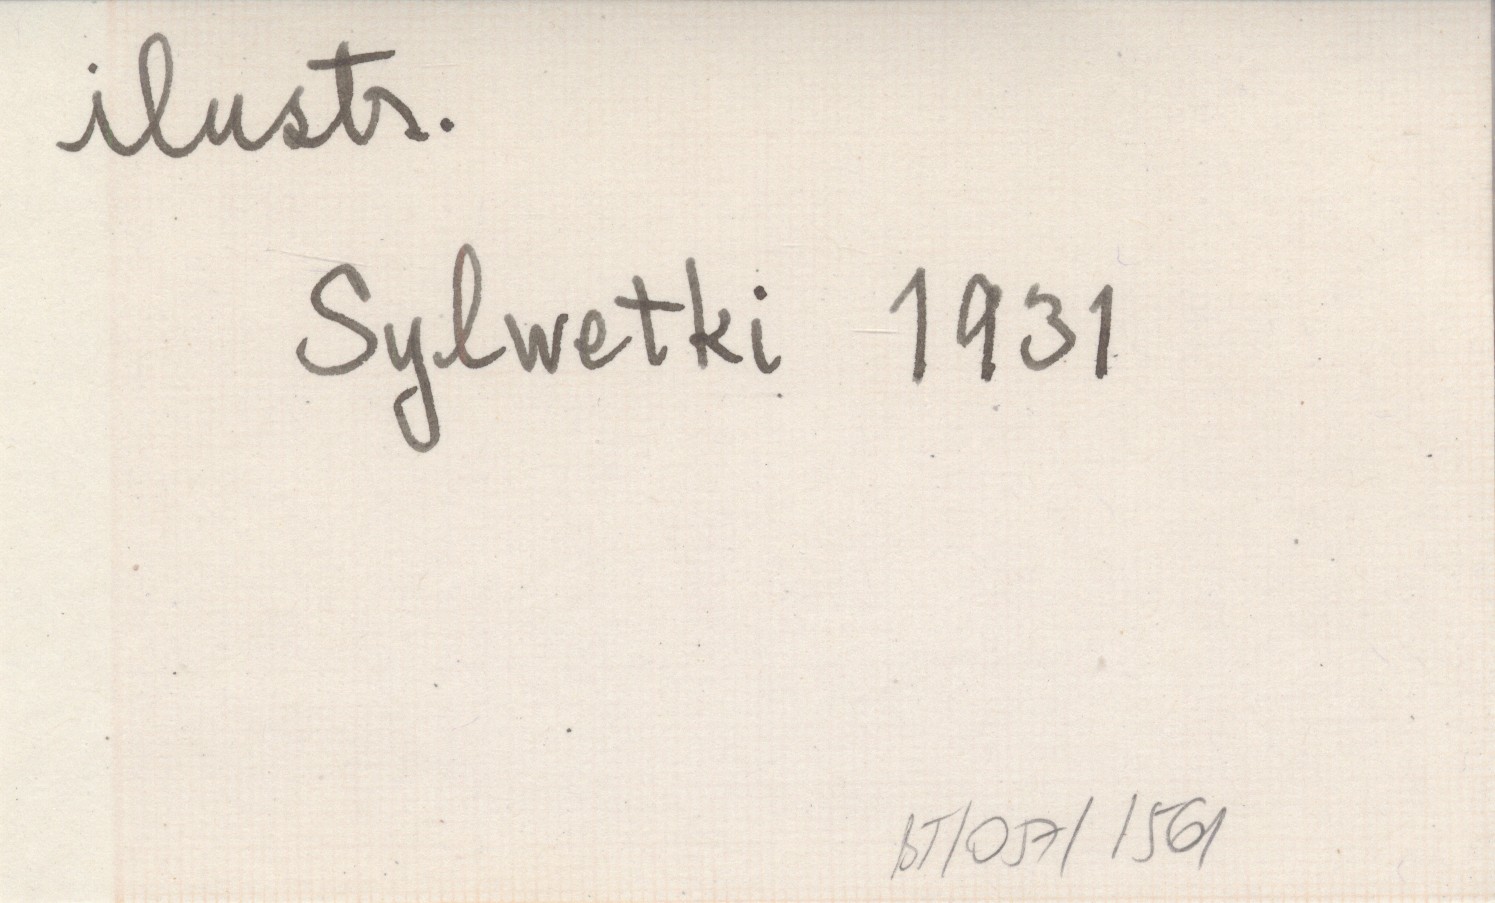 ilustr.
Sylwetki 1931
BT/057/1561